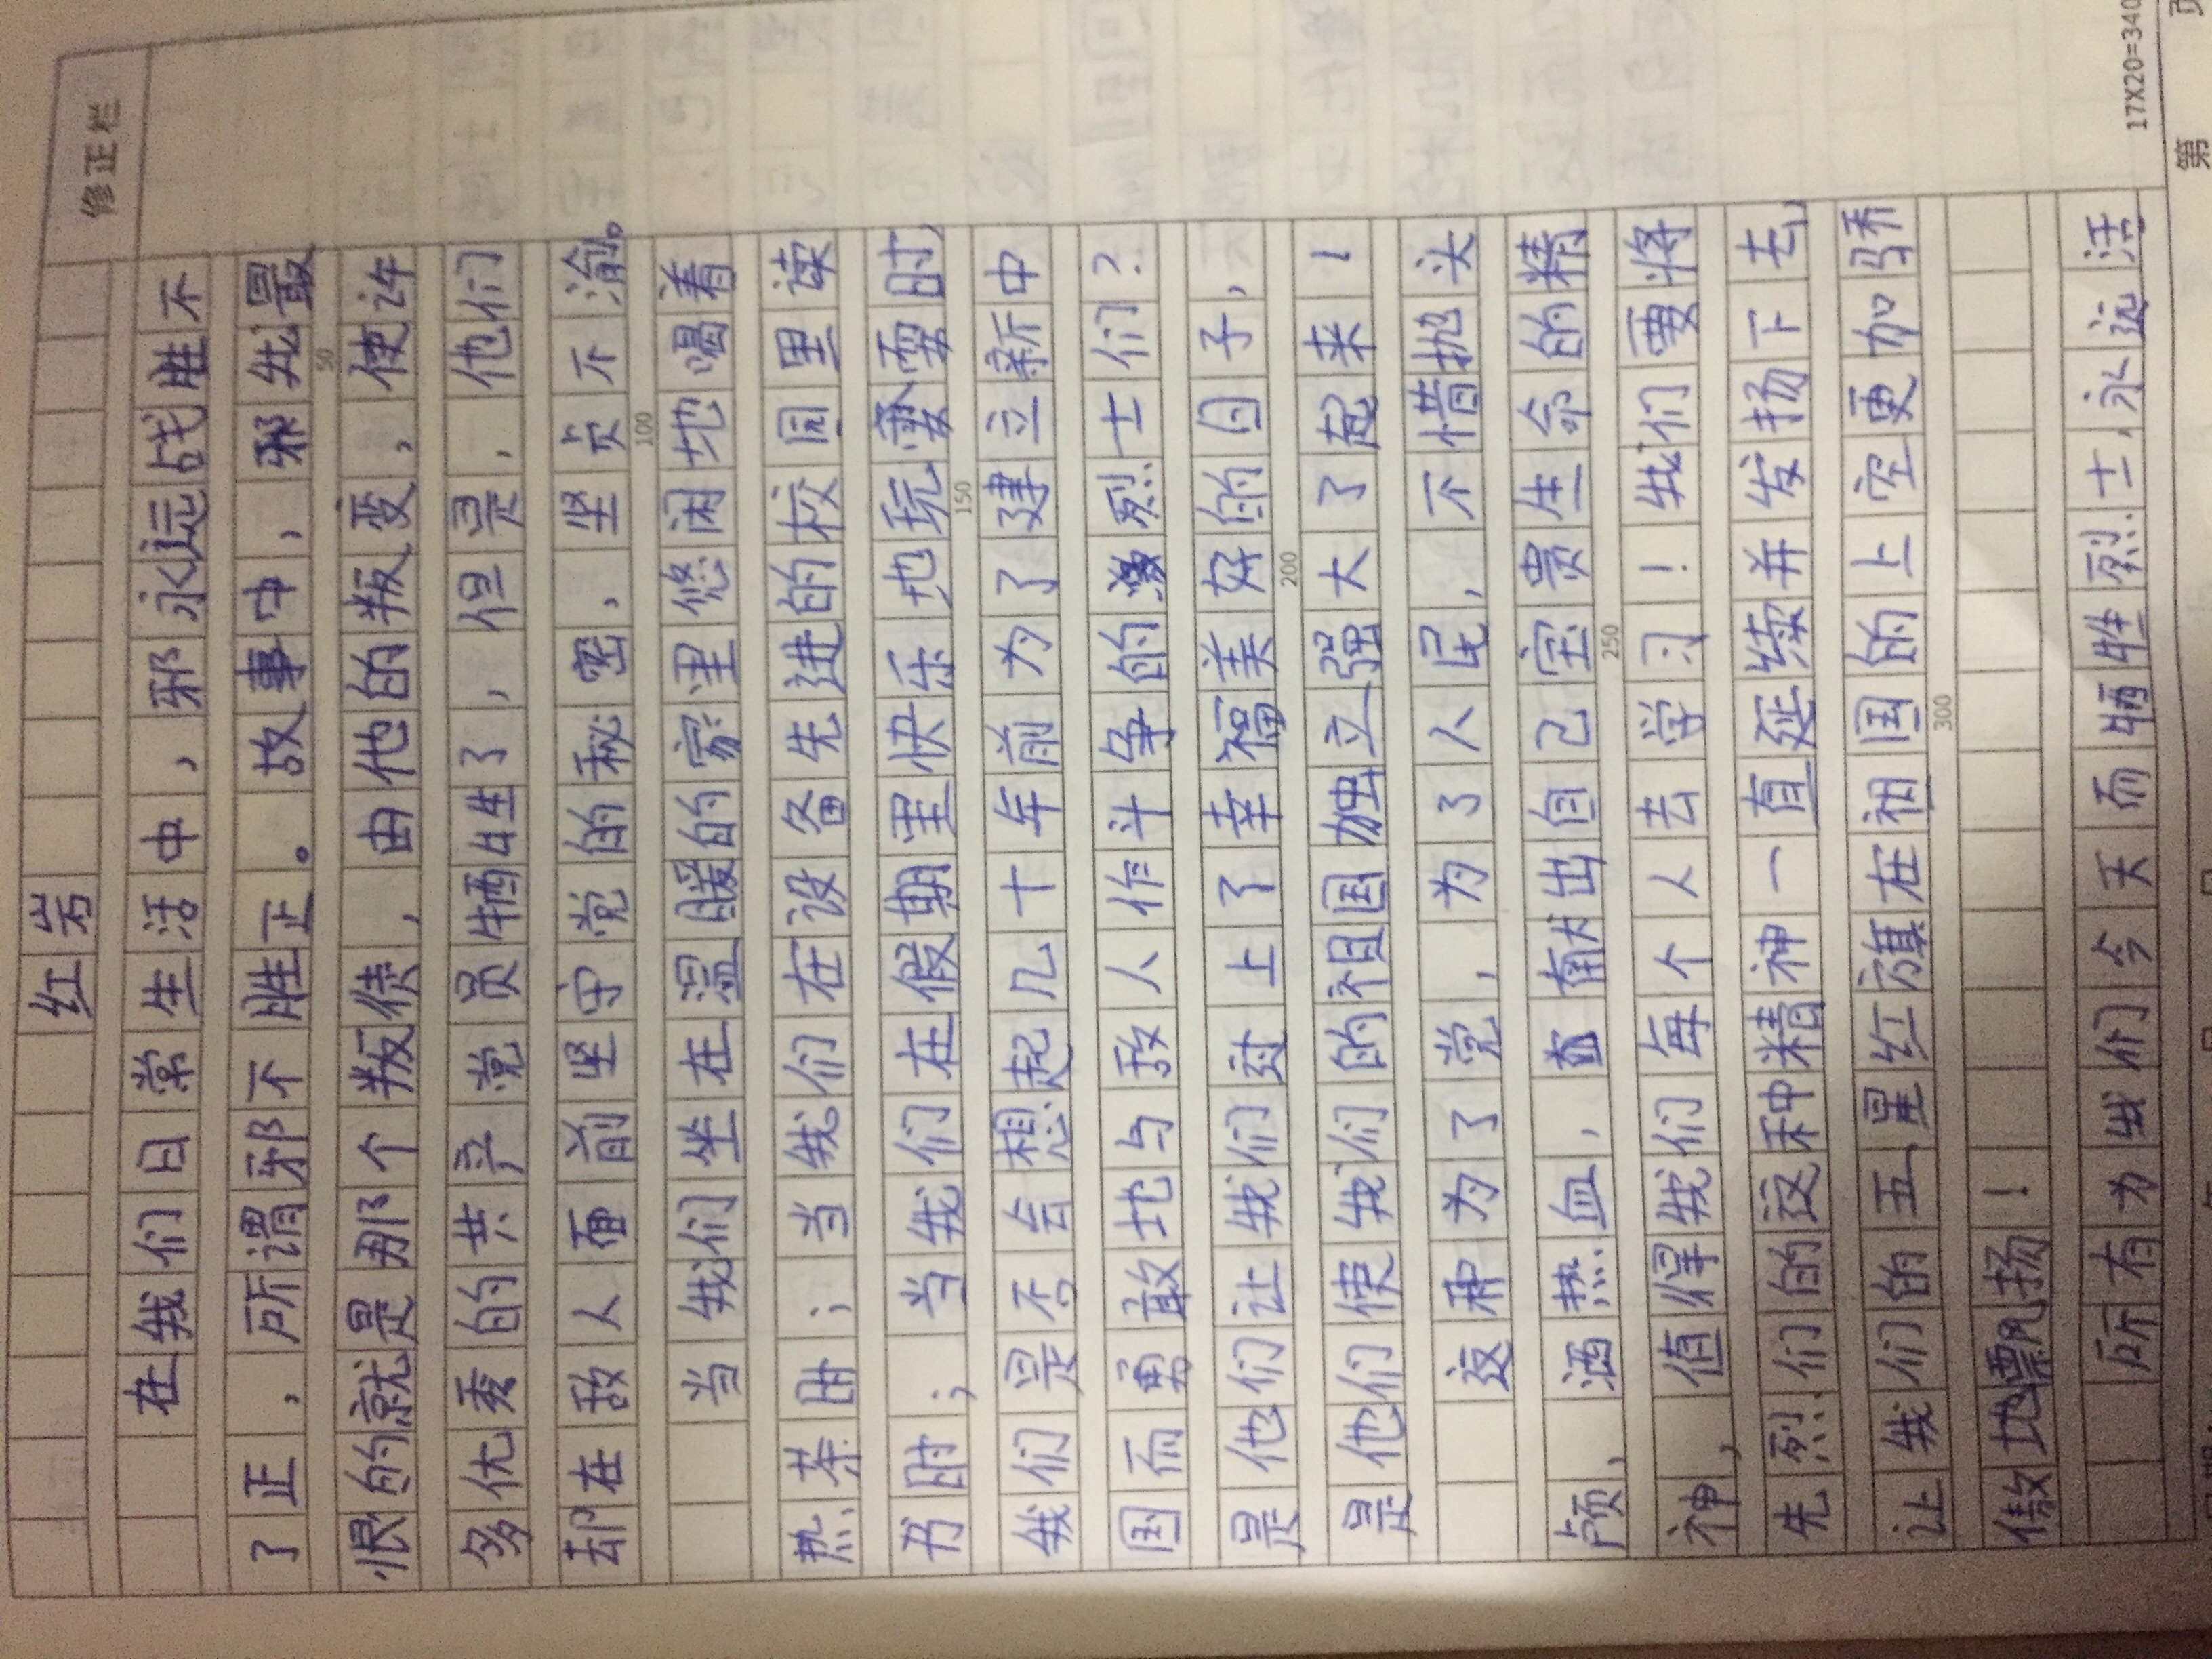 修正栏
红岩
在我们日常生活中，邪永远战胜不
了正，所谓邪不胜正。故事中，邪我最
恨的就是那个叛徒，由他的叛变，使许
多优秀的共产党员牺牲了，但是，他们
却在敌人面前坚守党的秘密，坚贞不渝。
当我们坐在温暖的家里悠闲地喝着
热茶时；当我们在设备先进的校园里读
书时；当我们在假期里快乐地玩耍时，
我们是否会想起几十年前为了建立新中
国而勇敢地与敌人作斗争的烈士们？
是他们让我们过上了幸福美好的日子，
是他们使我们的祖国独立强大了起来！
这种为了党，为了人民，不惜抛头
颅，洒热血，献出自己宝贵生命的精
神，值得我们每个人去学习！我们要将
先烈们的这种精神一直延续并发扬下去，
让我们的五星红旗在祖国的上空更加骄
傲地飘扬！
所有为我们今天而牺牲烈士，永远活
50
100
150
200
250
300
17X20=340
第 页